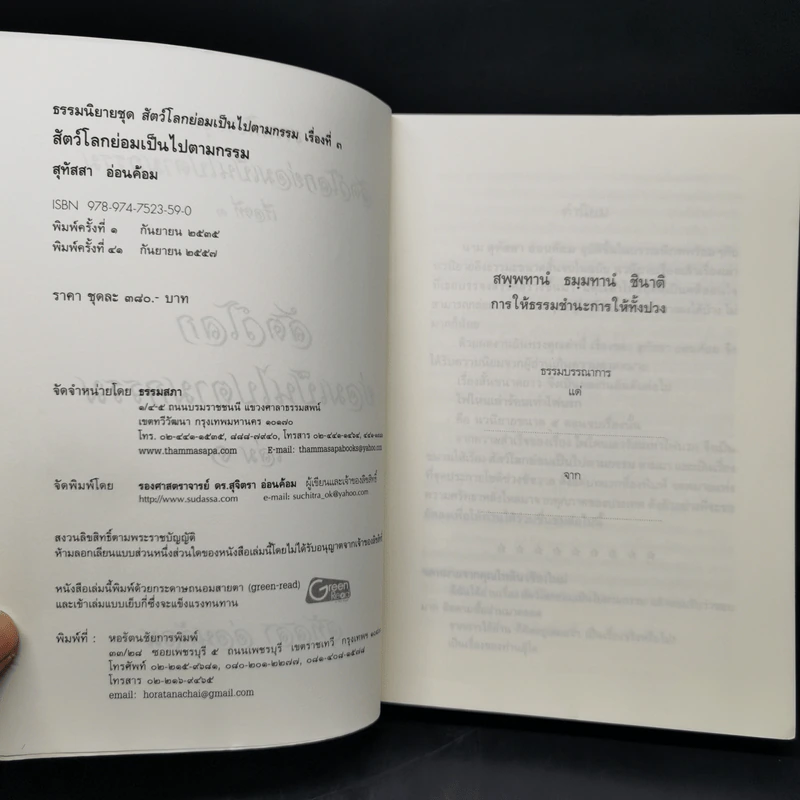 ธรรมนิยายชุด สัตว์โลกย่อมเป็นไปตามกรรม เรื่องที่ ๓
สัตว์โลกย่อมเป็นไปตามกรรม
สุทัสสา อ่อนค้อม
ISBN 978-974-7523-59-0
พิมพ์ครั้งที่ ๑ กันยายน ๒๕๓๕
พิมพ์ครั้งที่ ๔๑ กันยายน ๒๕๕๗
ราคา ชุดละ ๓๘๐.- บาท
จัดจำหน่ายโดย ธรรมสภา
๑/๔-๕ ถนนบรมราชชนนี แขวงศาลาธรรมสพน์
เขตทวีวัฒนา กรุงเทพมหานคร ๑๐๑๗๐
โทร. ๐๒-๔๔๑-๑๕๓๕, ๘๘๘-๗๙๔๐, โทรสาร ๐๒-๔๔๑-๑๔๖๔, ๔๔๑-
www.thammasapa.com E-mail: thammasapabooks@yahoo.com
จัดพิมพ์โดย รองศาสตราจารย์ ดร.สุจิตรา อ่อนค้อม ผู้เขียนและเจ้าของลิขสิทธิ์
http://www.sudassa.com e-mail: suchitra_ok@yahoo.com
สงวนลิขสิทธิ์ตามพระราชบัญญัติ
ห้ามลอกเลียนแบบส่วนหนึ่งส่วนใดของหนังสือเล่มนี้โดยไม่ได้รับอนุญาตจากเจ้าของลิขสิทธิ์
หนังสือเล่มนี้พิมพ์ด้วยกระดาษถนอมสายตา (green-read)
และเข้าเล่มแบบเย็บกี่ซึ่งจะแข็งแรงทนทาน
Green Read
พิมพ์ที่ : หอรัตนชัยการพิมพ์
๓๓/๒๘ ซอยเพชรบุรี ๕ ถนนเพชรบุรี เขตราชเทวี กรุงเทพฯ
โทรศัพท์ ๐๒-๒๑๕-๙๖๘๑, ๐๘๐-๒๐๑-๒๒๗๗, ๐๘๑-๔๐๘-๑๕๗๘
โทรสาร ๐๒-๒๑๖-๙๔๖๕
email: horatanachai@gmail.com
สพฺพทานํ ธมฺมทานํ ชินาติ
การให้ธรรมชำนะการให้ทั้งปวง
ธรรมบรรณาการ
แด่
จาก